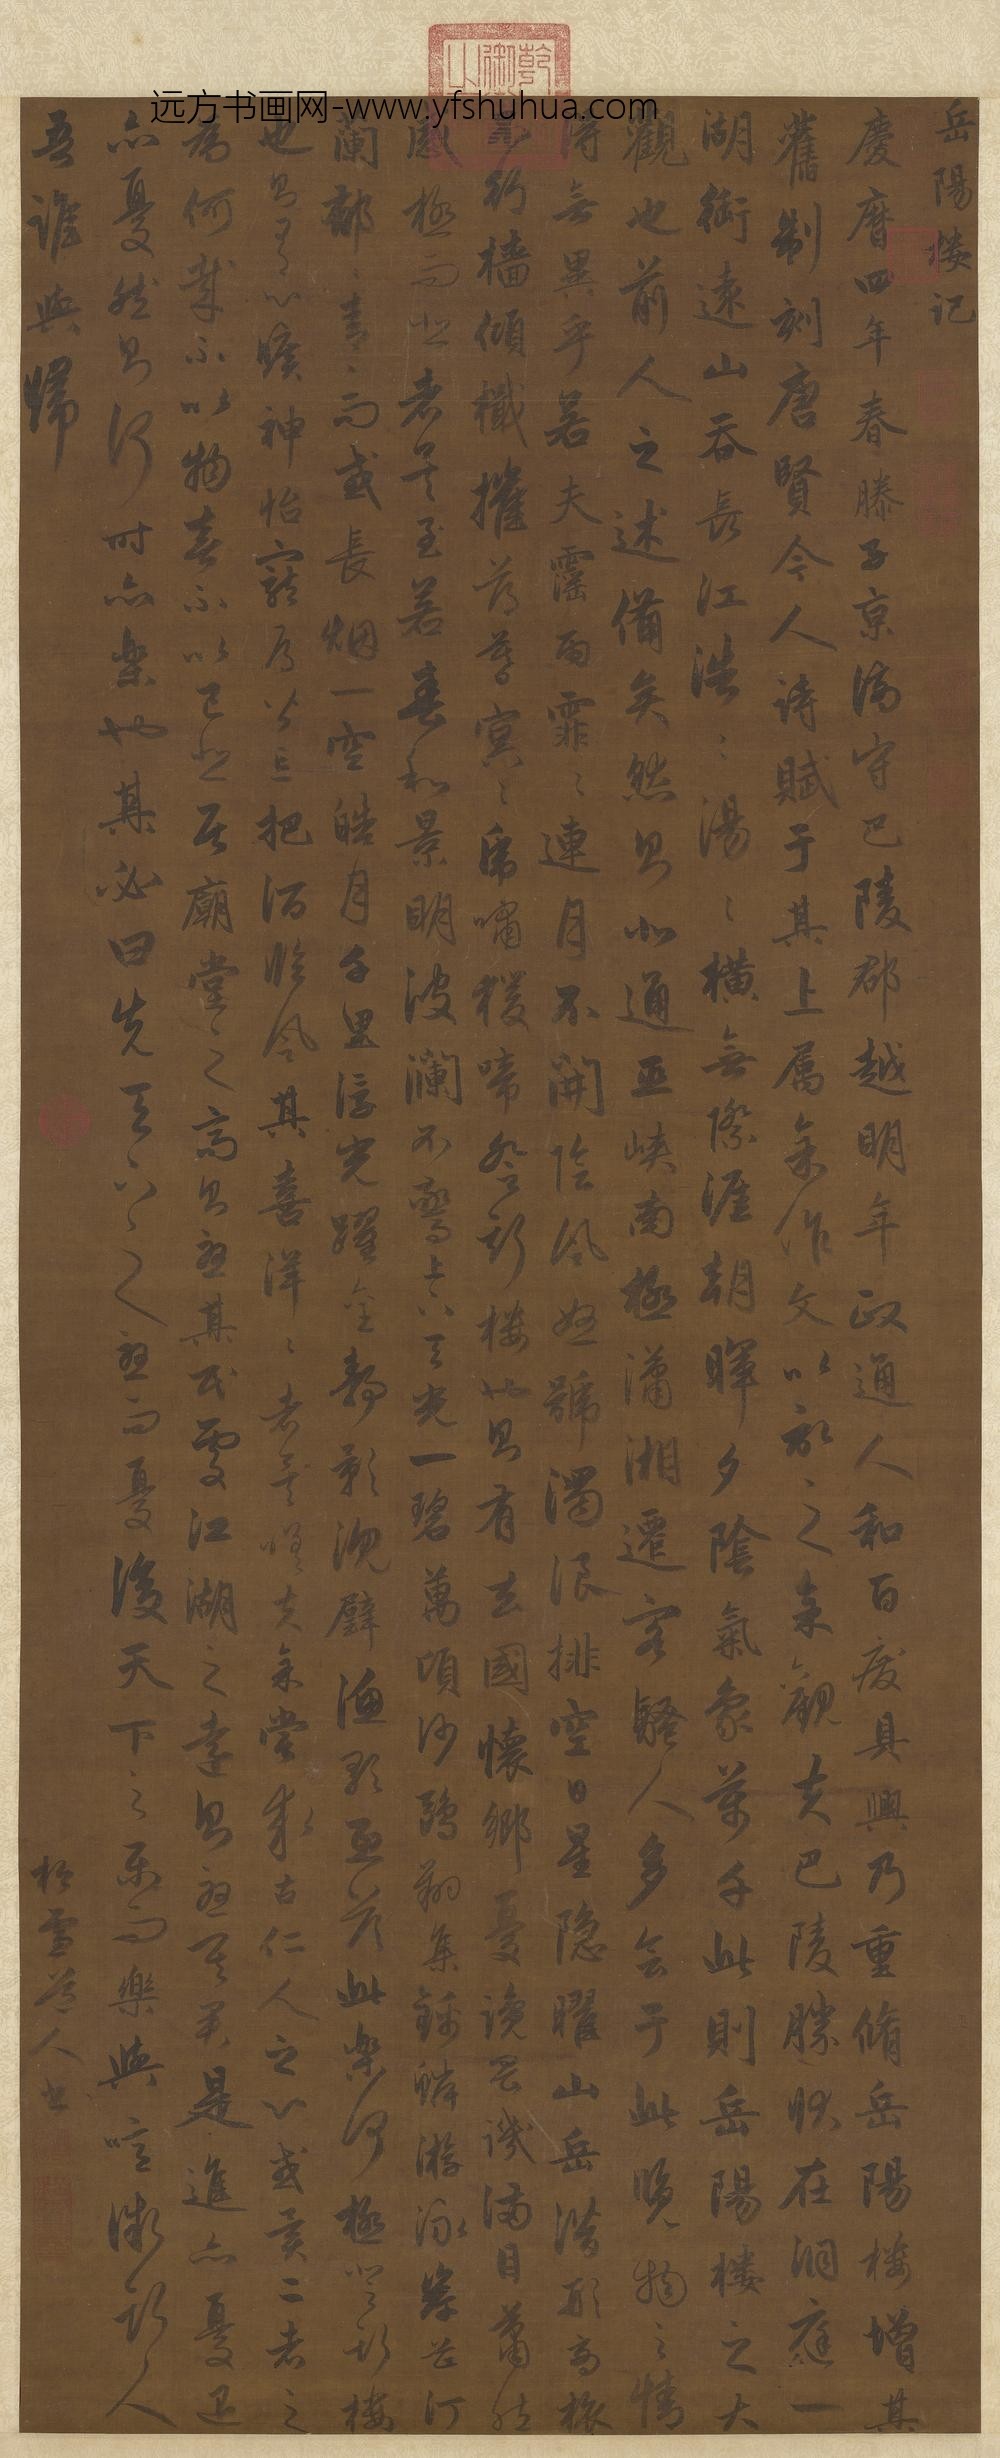 岳陽樓記
慶曆四年春滕子京謫守巴陵郡越明年政通人和百廢具興乃重脩岳陽樓增其
舊制刻唐賢今人詩賦于其上属余作文以記之余觀夫巴陵勝狀在洞庭一
湖銜遠山吞長江浩〻湯〻橫無際涯朝暉夕陰氣象萬千此則岳陽樓之大
觀也前人之述備矣然則北通巫峽南極瀟湘遷客騷人多會于此覽物之情
得無異乎若夫霪雨霏〻連月不開陰風怒號濁浪排空日星隱曜山岳潛形商旅
不行檣傾檝摧薄暮冥〻虎嘯猨啼登斯樓也則有去國懷鄉憂讒畏譏滿目蕭然
感極而悲者矣至若春和景明波瀾不驚上下天光一碧萬頃沙鷗翔集錦鱗游泳岸芷汀
蘭郁〻青〻而或長烟一空皓月千里浮光躍金靜影沉璧漁歌互答此樂何極登斯樓
也則有心曠神怡寵辱皆忘把酒臨風其喜洋〻者矣嗟夫余嘗求古仁人之心或異二者之
為何哉不以物喜不以己悲居廟堂之高則憂其民處江湖之遠則憂其君是進亦憂退
亦憂然則何時而樂也其必曰先天下之憂而憂後天下之樂而樂與噫微斯人
吾誰與歸
松雪道人書
乾隆御
远方书画网-www.yfshuhua.com